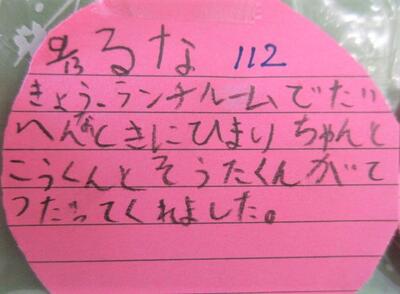 9/13 るな 112
きょう、ランチルームでたい
へんなときにひまりちゃんと
こうくんとそうたくんがて
つだってくれました。